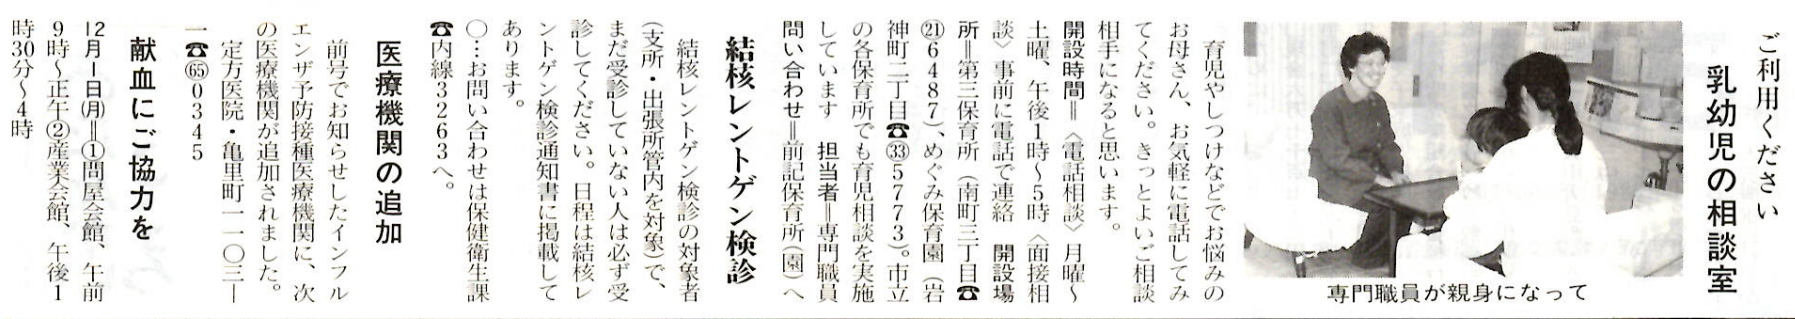 ご利用ください
乳幼児の相談室
専門職員が親身になって
育児やしつけなどでお悩みの
お母さん、お気軽に電話してみ
てください。きっとよいご相談
相手になると思います。
開設時間＝〈電話相談〉月曜〜
土曜、午後1時〜5時〈面接相
談〉事前に電話で連絡　開設場
所＝第三保育所（南町三丁目☎
㉑6487）、めぐみ保育園（岩
神町二丁目☎㉝5773）。市立
の各保育所でも育児相談を実施
しています　担当者＝専門職員
問い合わせ＝前記保育所（園）へ
結核レントゲン検診
結核レントゲン検診の対象者
（支所・出張所管内を対象）で、
まだ受診していない人は必ず受
診してください。日程は結核レ
ントゲン検診通知書に掲載して
あります。
○…お問い合わせは保健衛生課
☎内線3263へ。
医療機関の追加
前号でお知らせしたインフル
エンザ予防接種医療機関に、次
の医療機関が追加されました。
定方医院・亀里町一一〇三ー
一☎(65)0345
献血にご協力を
12月1日(月)＝①問屋会館、午前
9時〜正午②産業会館、午後1
時30分〜4時